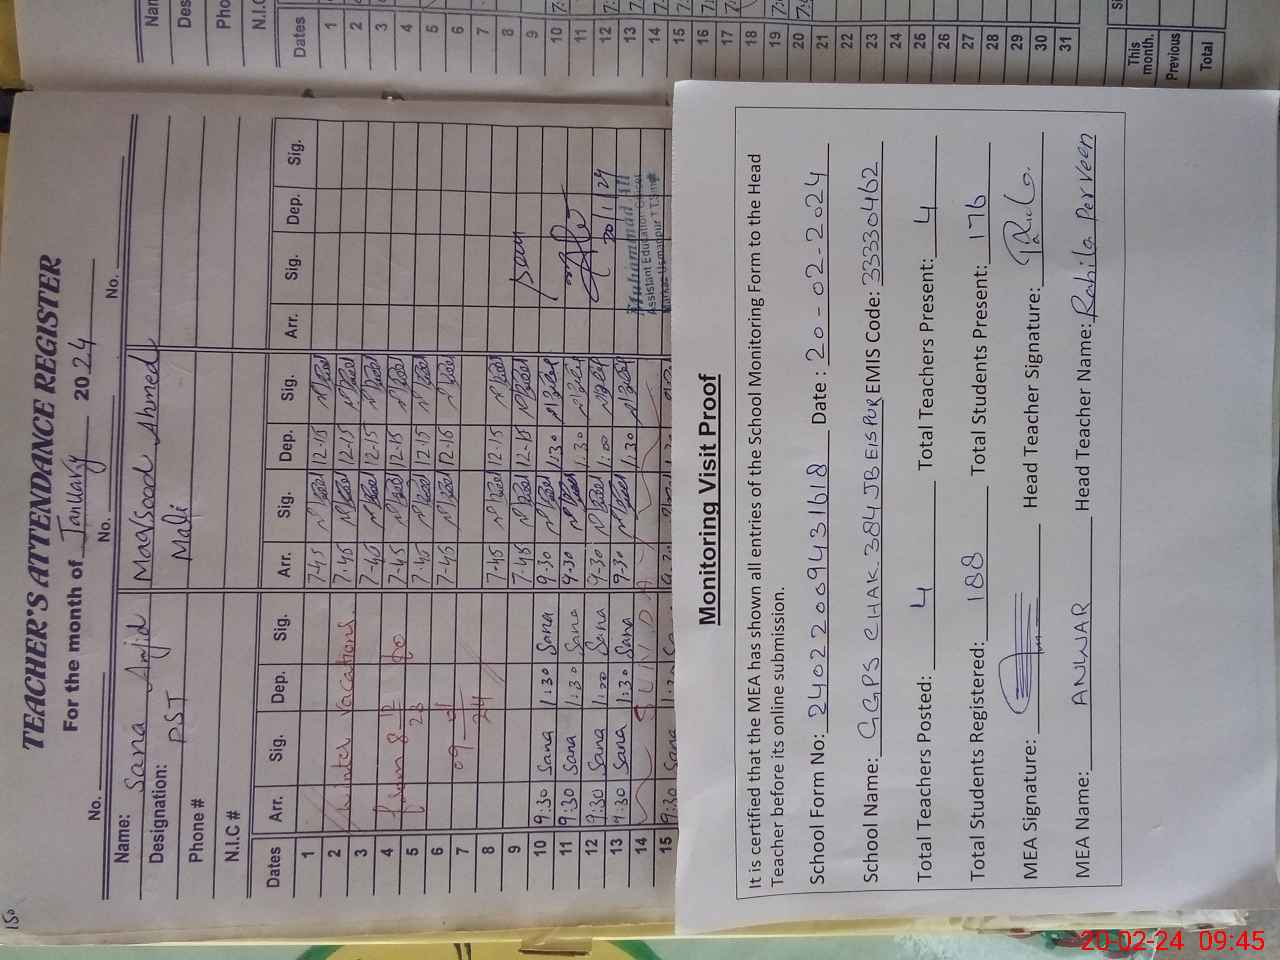 150
TEACHER'S ATTENDANCE REGISTER
For the month of January 2024
No. No. No.
Name: Sana Amjid Maqsood Ahmed
Designation: PST Mali
Phone #
N.I.C #
Dates Arr. Sig. Dep. Sig. Arr. Sig. Dep. Sig. Arr. Sig. Dep. Sig.
1 7-45 12-15
2 Winter Vacations 7-45 12-15
3 7-45 12-15
4 from 18 12 to 7-45 12-15
5 23 7-45 12-15
6 09 01 7-45 12-15
7 24
8 7-45 12-15
9 7-45 12-15
10 9:30 Sana 1:30 Sana 9-30 1:30
11 9:30 Sana 1:30 Sana 9-30 1:30
12 9:30 Sana 1:00 Sana 9-30 1:00
13 9:30 Sana 1:30 Sana 9-30 1:30
14 SUNDAY
15 9:30 Sana
Muhammad Ali
Assistant Education Officer
Dates
1
2
3
4
5
6
7
8
9
10
11
12
13
14
15
16
17
18
19
20
21
22
23
24
25
26
27
28
29
30
31
This month.
Previous
Total
Monitoring Visit Proof
It is certified that the MEA has shown all entries of the School Monitoring Form to the Head
Teacher before its online submission.
School Form No: 24022009431618 Date : 20-02-2024
School Name: GGPS CHAK.384 JB EISPUR EMIS Code: 33330462
Total Teachers Posted: 4 Total Teachers Present: 4
Total Students Registered: 188 Total Students Present: 176
MEA Signature: Head Teacher Signature:
MEA Name: ANWAR Head Teacher Name: Rahila Perveen
20-02-24 09:45